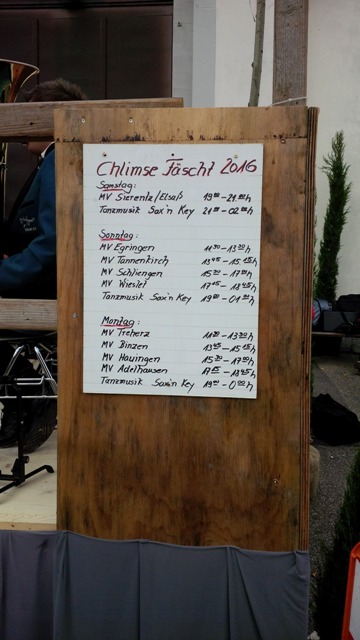 Chlimse Fäscht 2016
Samstag:
MV Sierentz/Elsaß 19⁰⁰-21.⁰⁰h
Tanzmusik Sax'n Key 21⁰⁰-02.⁰⁰h
Sonntag:
MV Egringen 11³⁰-13³⁰h
MV Tannenkirch 13⁴⁵-15¹⁵h
MV Schliengen 15³⁰-17⁰⁰h
MV Wieslet 17¹⁵-18⁴⁵h
Tanzmusik Sax'n Key 19⁰⁰-01⁰⁰h
Montag:
MV Treherz 11³⁰-13³⁰h
MV Binzen 13⁴⁵-15¹⁵h
MV Hauingen 15³⁰-17⁰⁰h
MV Adelhausen 17¹⁵-18⁴⁵h
Tanzmusik Sax'n Key 19⁰⁰-0⁰⁰h